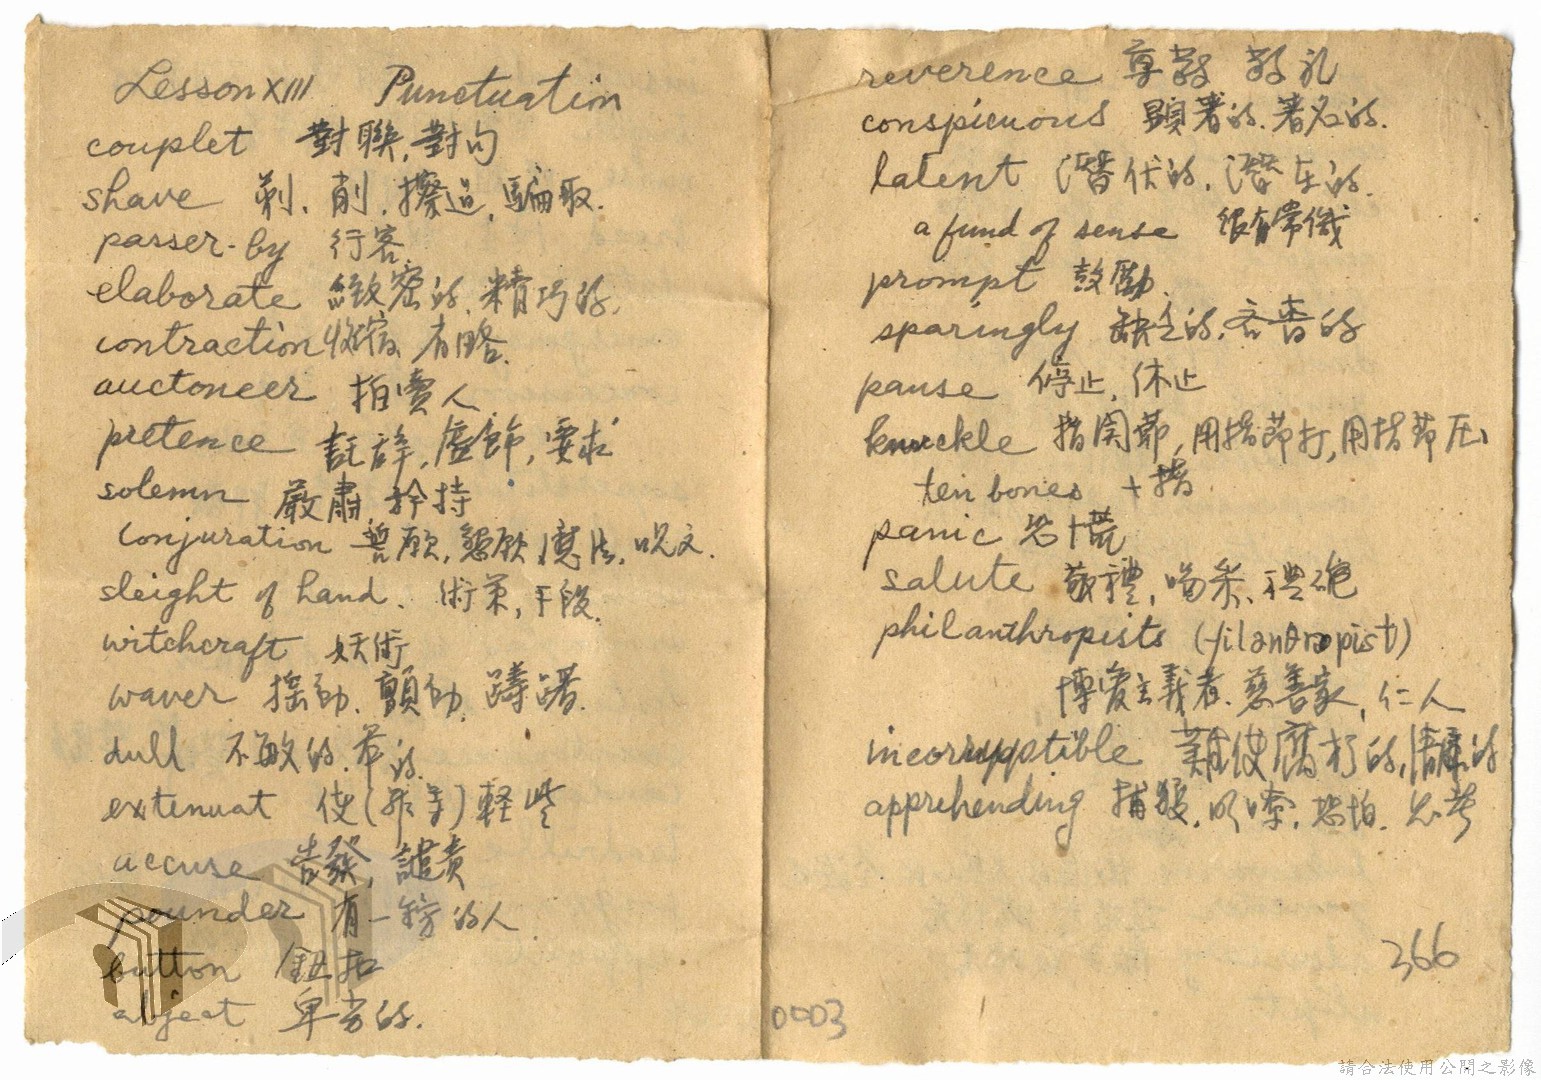 Lesson XIII Punctuation
couplet 對聯,對句
shave 剃、削,擦過,騙取.
passer-by 行客
elaborate 緻密的,精巧的,
contraction 收縮,省略.
auctoneer 拍賣人
pretence 託辞,虛飾,要求
solemn 嚴肅,矜持
conjuration 誓願,懇願,魔法,呪文.
sleight of hand. 術策,手段.
witchcraft 妖術
waver 搖動、顫動,躊躇.
dull 不敏的、笨的.
extenuat 使(罪等)軽些
accuse 告發,譴責
pounder 有一鎊的人
button 鈕扣
abject 卑劣的.
reverence 尊敬 敬礼
conspicuous 顕著的、著名的.
latent 潛伏的,潛在的.
a fund of sense 很有常識
prompt 鼓勵.
sparingly 缺乏的,吝嗇的
pause 停止,休止
knuckle 指関節,用指節打,用指節压
ten bones 十指
panic 恐慌
salute 敬禮,喝采、禮砲
philanthropists (filanθrəpist)
博愛主義者、慈善家,仁人
incorrupptible 難使腐朽的,清廉的
apprehending 捕獲,以爲,恐怕.思考
366
0003
請合法使用公開之影像